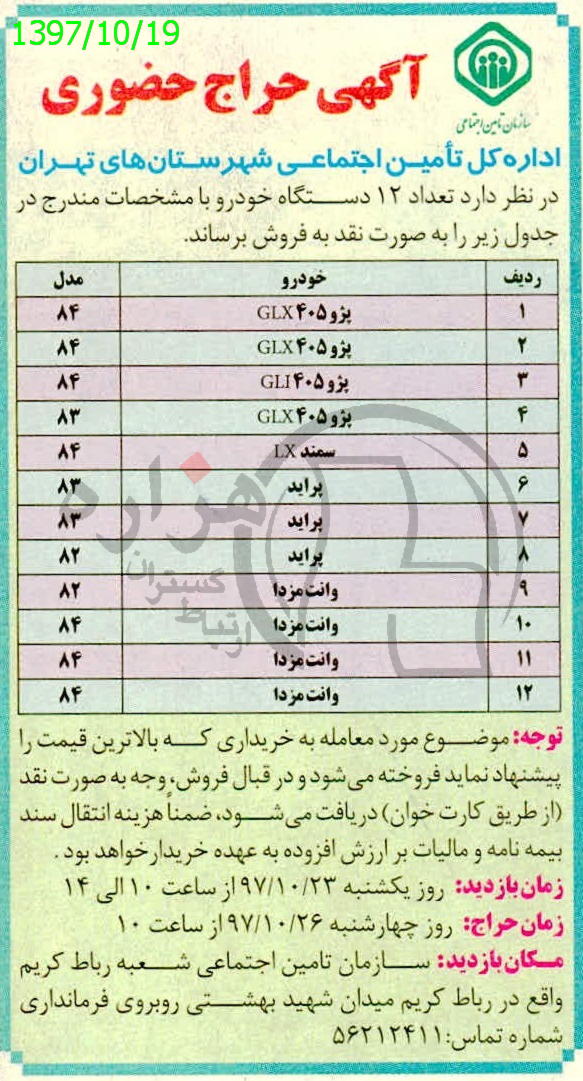 1397/10/19
سازمان تامین اجتماعی
آگهی حراج حضوری
اداره کل تأمین اجتماعی شهرستان‌های تهران
در نظر دارد تعداد ۱۲ دستگاه خودرو با مشخصات مندرج در
جدول زیر را به صورت نقد به فروش برساند.
ردیف خودرو مدل
۱ پژو ۴۰۵ GLX ۸۴
۲ پژو ۴۰۵ GLX ۸۴
۳ پژو ۴۰۵ GLI ۸۴
۴ پژو ۴۰۵ GLX ۸۳
۵ سمند LX ۸۴
۶ پراید ۸۳
۷ پراید ۸۳
۸ پراید ۸۲
۹ وانت مزدا ۸۲
۱۰ وانت مزدا ۸۴
۱۱ وانت مزدا ۸۴
۱۲ وانت مزدا ۸۴
هزاره
گستران
ارتباط
توجه: موضوع مورد معامله به خریداری که بالاترین قیمت را
پیشنهاد نماید فروخته می‌شود و در قبال فروش، وجه به صورت نقد
(از طریق کارت خوان) دریافت می‌شود، ضمناً هزینه انتقال سند
بیمه نامه و مالیات بر ارزش افزوده به عهده خریدار خواهد بود.
زمان بازدید: روز یکشنبه ۹۷/۱۰/۲۳ از ساعت ۱۰ الی ۱۴
زمان حراج: روز چهارشنبه ۹۷/۱۰/۲۶ از ساعت ۱۰
مکان بازدید: سازمان تامین اجتماعی شعبه رباط کریم
واقع در رباط کریم میدان شهید بهشتی روبروی فرمانداری
شماره تماس: ۵۶۲۱۲۴۱۱